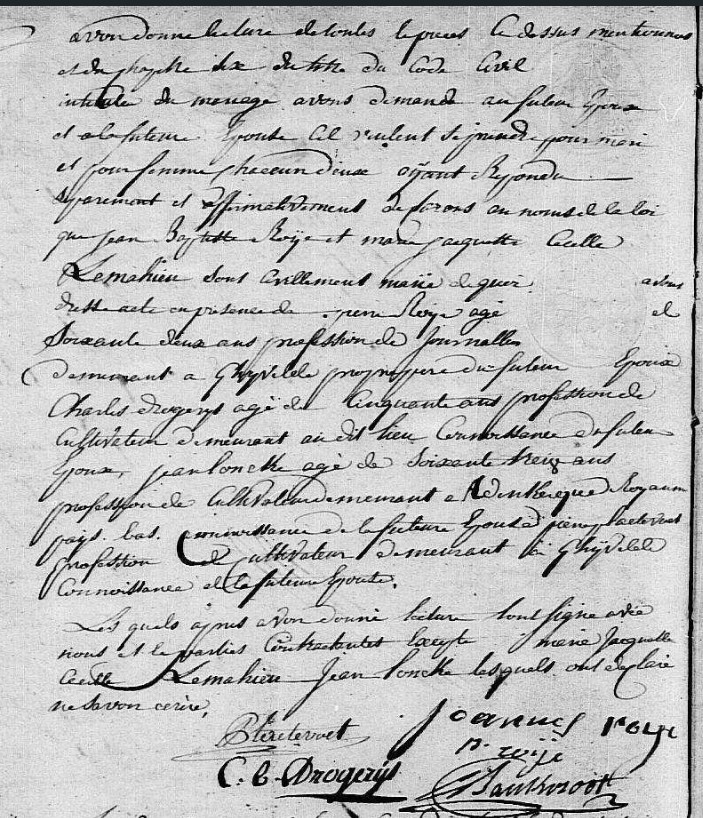 avon donne lecture de toutes les pieces ci dessus mentionnés
et du chapitre six du titre du Code Civil
intitulé du mariage avons demandé au futur Epoux
et a la future Epouse s'il veulent se prendre pour mari
et pour femme chacun d'eux ayant Repondu
separement et affirmativement declarons au nom de la loi
que jean Baptiste Roije et marie jacquette Cecille
Lemahieu sont civillement marié de quoi avons
dressé acte en presence de pierre Roije agé de
Soixante deux ans profession de journallier
demeurant a Ghyvelde propre pere du futur Epoux
Charles drogerys agé de Cinquante ans profession de
Cultivateur demeurant au dit lieu Connoissance du futur
Epoux, jean loncke agé de Soixante treize ans
profession de Cultivateur demeurant a Adinkerque Royaume
pays. bas. connoissance de la future Epouse
profession de Cultivateur demeurant à Ghyvelde
Connoissance de la future Epouse.
Les quels apres avon donné lecture sont signé avec
nous et le parties Contractantes Excepte marie Jacquette
Cecille Lemahieu Jean loncke lesquels ont declaré
ne savon ecrire,
joannes roije
p. roije
C. b. Drogerijs